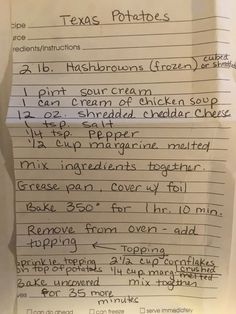 cipe Texas Potatoes
rce
redients/instructions
2 lb. Hashbrowns (frozen) cubed or shredded
1 pint sour cream
1 can cream of chicken soup
12 oz. shredded cheddar cheese
1 tsp. salt
1/4 tsp. Pepper
1/2 cup margarine melted
mix ingredients together.
Grease pan, cover w/ foil
Bake 350° for 1 hr. 10 min.
Remove from oven - add
topping ← Topping
sprinkle topping 2 1/2 cup cornflakes crushed
on top of potatoes 1/4 cup marg. melted
Bake uncovered mix together
for 35 more
minutes
can do ahead can freeze serve immediately